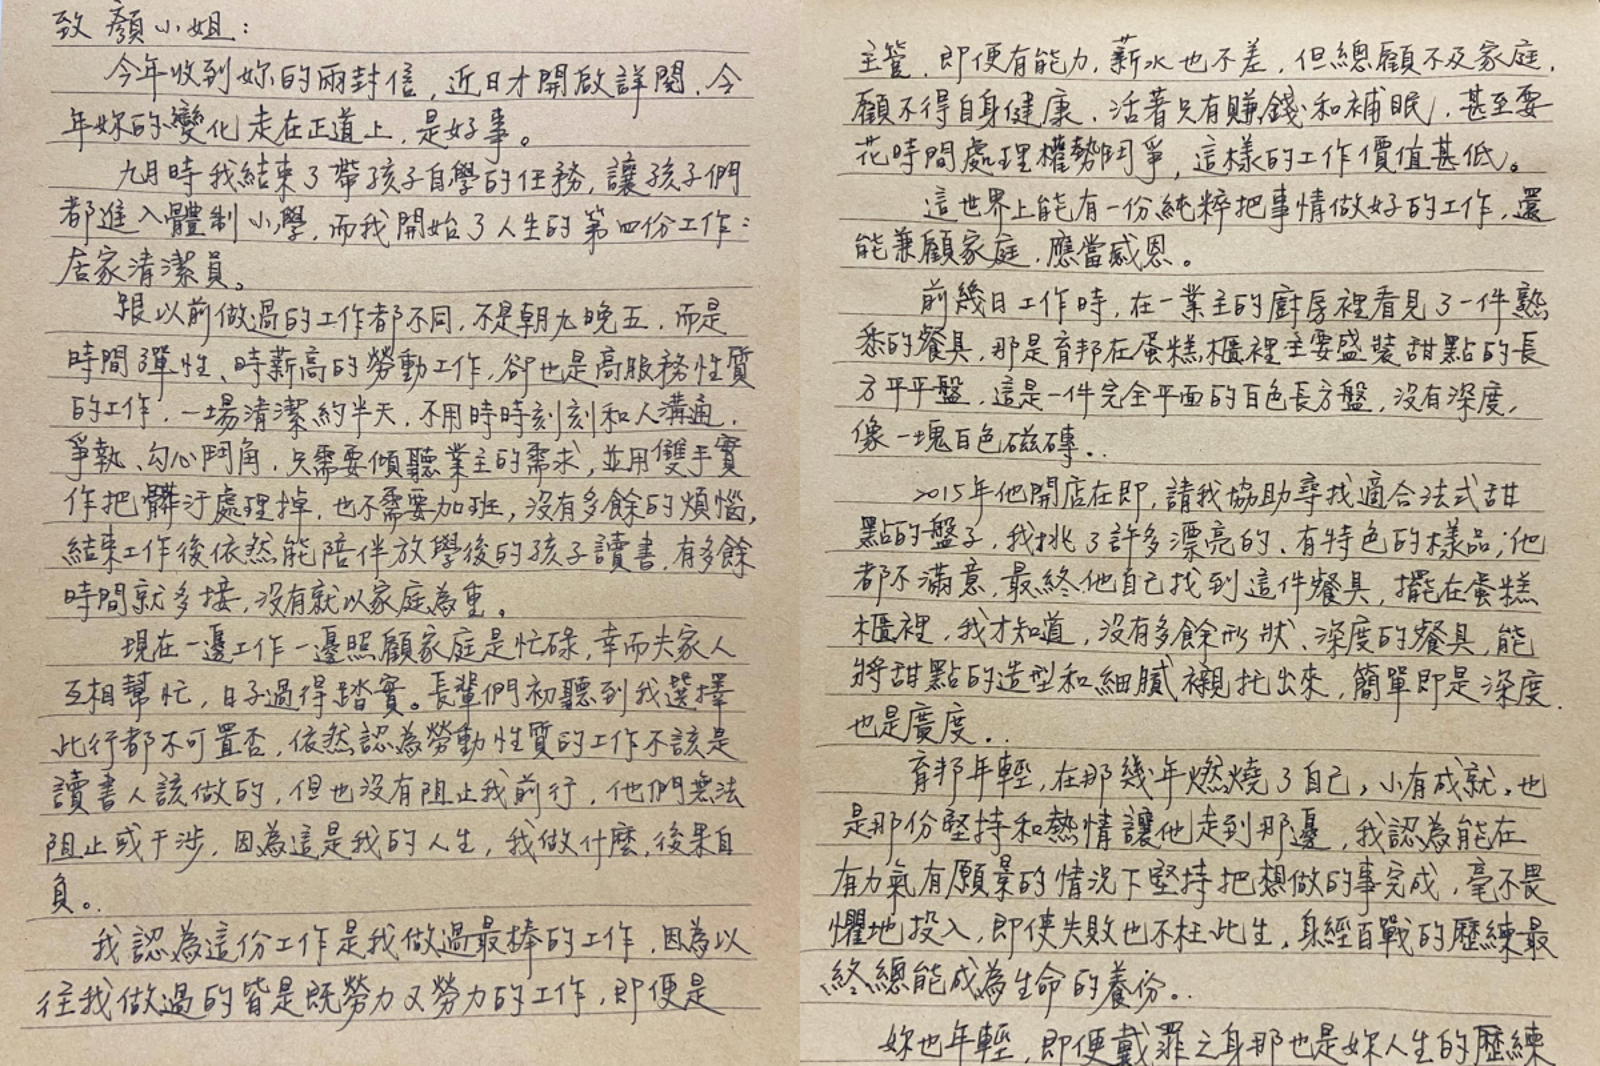 致顏小姐：
今年收到妳的兩封信，近日才開啟詳閱，今
年妳的變化走在正道上，是好事。
九月時我結束了帶孩子自學的任務，讓孩子們
都進入體制小學，而我開始了人生的第四份工作：
居家清潔員。
跟以前做過的工作都不同，不是朝九晚五，而是
時間彈性、時薪高的勞動工作，卻也是高服務性質
的工作，一場清潔約半天，不用時時刻刻和人溝通，
爭執、勾心鬥角，只需要傾聽業主的需求，並用雙手實
作把髒汙處理掉，也不需要加班，沒有多餘的煩惱，
結束工作後依然能陪伴放學後的孩子讀書，有多餘
時間就多接，沒有就以家庭為重。
現在一邊工作一邊照顧家庭是忙碌，幸而夫家人
互相幫忙，日子過得踏實。長輩們初聽到我選擇
此行都不可置否，依然認為勞動性質的工作不該是
讀書人該做的，但也沒有阻止我前行，他們無法
阻止或干涉，因為這是我的人生，我做什麼，後果自
負。
我認為這份工作是我做過最棒的工作，因為以
往我做過的皆是既勞力又勞力的工作，即便是
主管，即便有能力，薪水也不差，但總顧不及家庭，
顧不得自身健康，活著只有賺錢和補眠，甚至要
花時間處理權勢鬥爭，這樣的工作價值甚低。
這世界上能有一份純粹把事情做好的工作，還
能兼顧家庭，應當感恩。
前幾日工作時，在一業主的廚房裡看見了一件熟
悉的餐具，那是育邦在蛋糕櫃裡主要盛裝甜點的長
方平平盤，這是一件完全平面的白色長方盤，沒有深度，
像一塊白色磁磚..
2015年他開店在即，請我協助尋找適合法式甜
點的盤子，我挑了許多漂亮的、有特色的樣品；他
都不滿意，最終他自己找到這件餐具，擺在蛋糕
櫃裡，我才知道，沒有多餘形狀、深度的餐具，能
將甜點的造型和細膩襯托出來，簡單即是深度，
也是廣度..
育邦年輕，在那幾年燃燒了自己，小有成就，也
是那份堅持和熱情讓他走到那邊，我認為能在
有力氣有願景的情況下堅持把想做的事完成，毫不畏
懼地投入，即使失敗也不枉此生，身經百戰的歷練最
終總能成為生命的養份..
妳也年輕，即便戴罪之身那也是妳人生的歷練